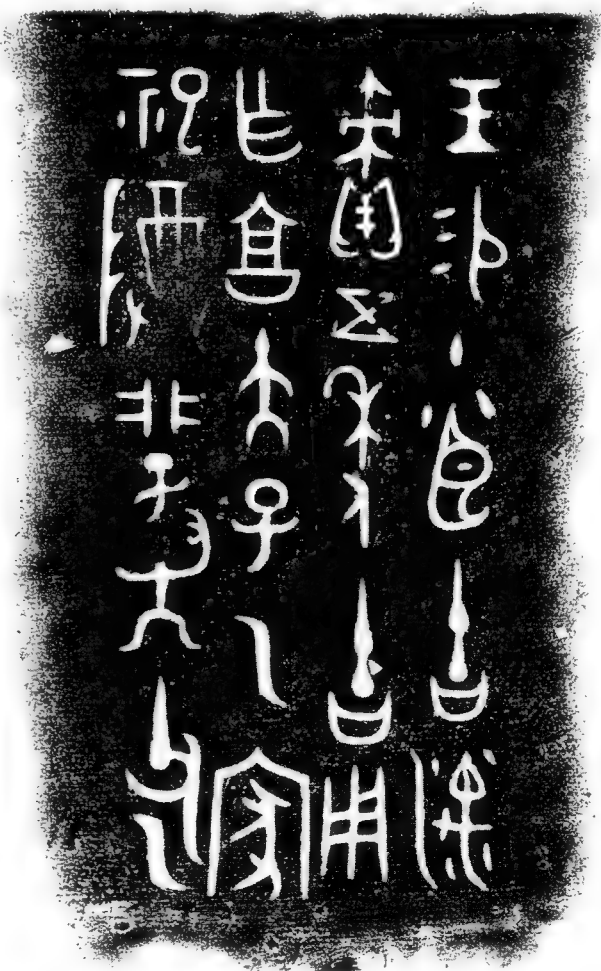 王易小臣缶湡
責五年缶用
乍享大子乙家
祀尊冀父乙